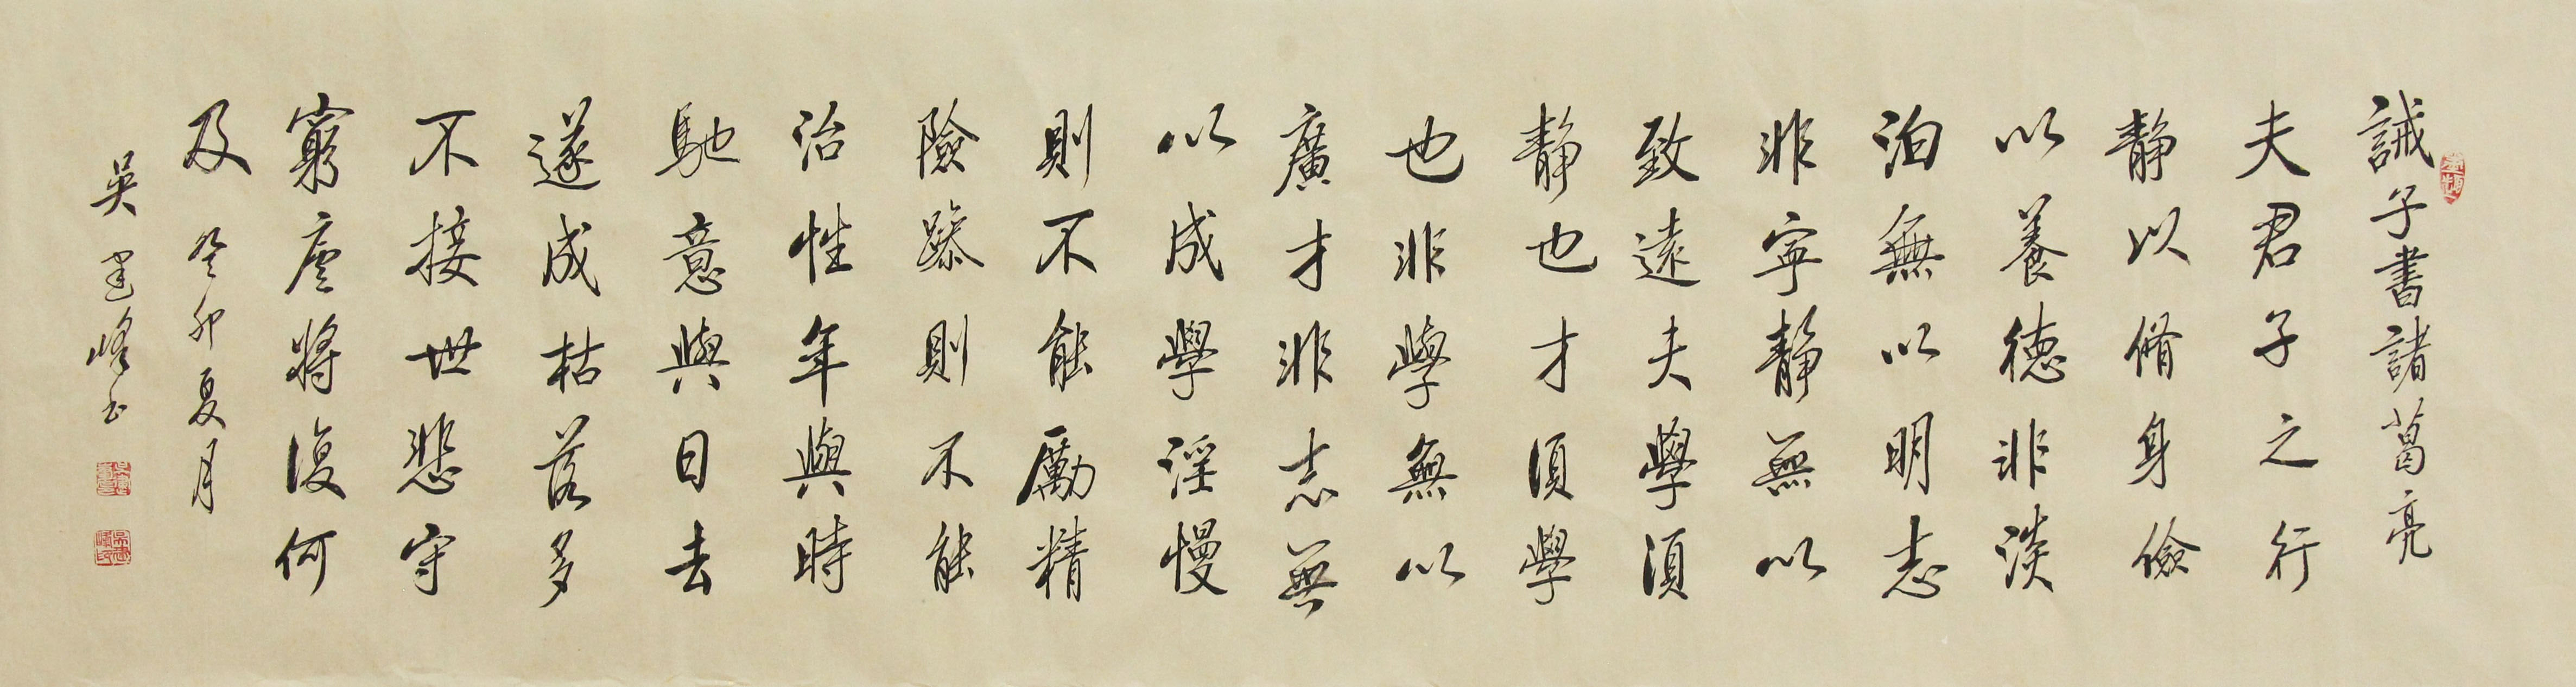 誡子書諸葛亮
夫君子之行
靜以脩身儉
以養德非淡
泊無以明志
非寧靜無以
致遠夫學須
靜也才須學
也非學無以
廣才非志無
以成學淫慢
則不能勵精
險躁則不能
治性年與時
馳意與日去
遂成枯落多
不接世悲守
窮廬將復何
及 癸卯夏月
吳建峰書